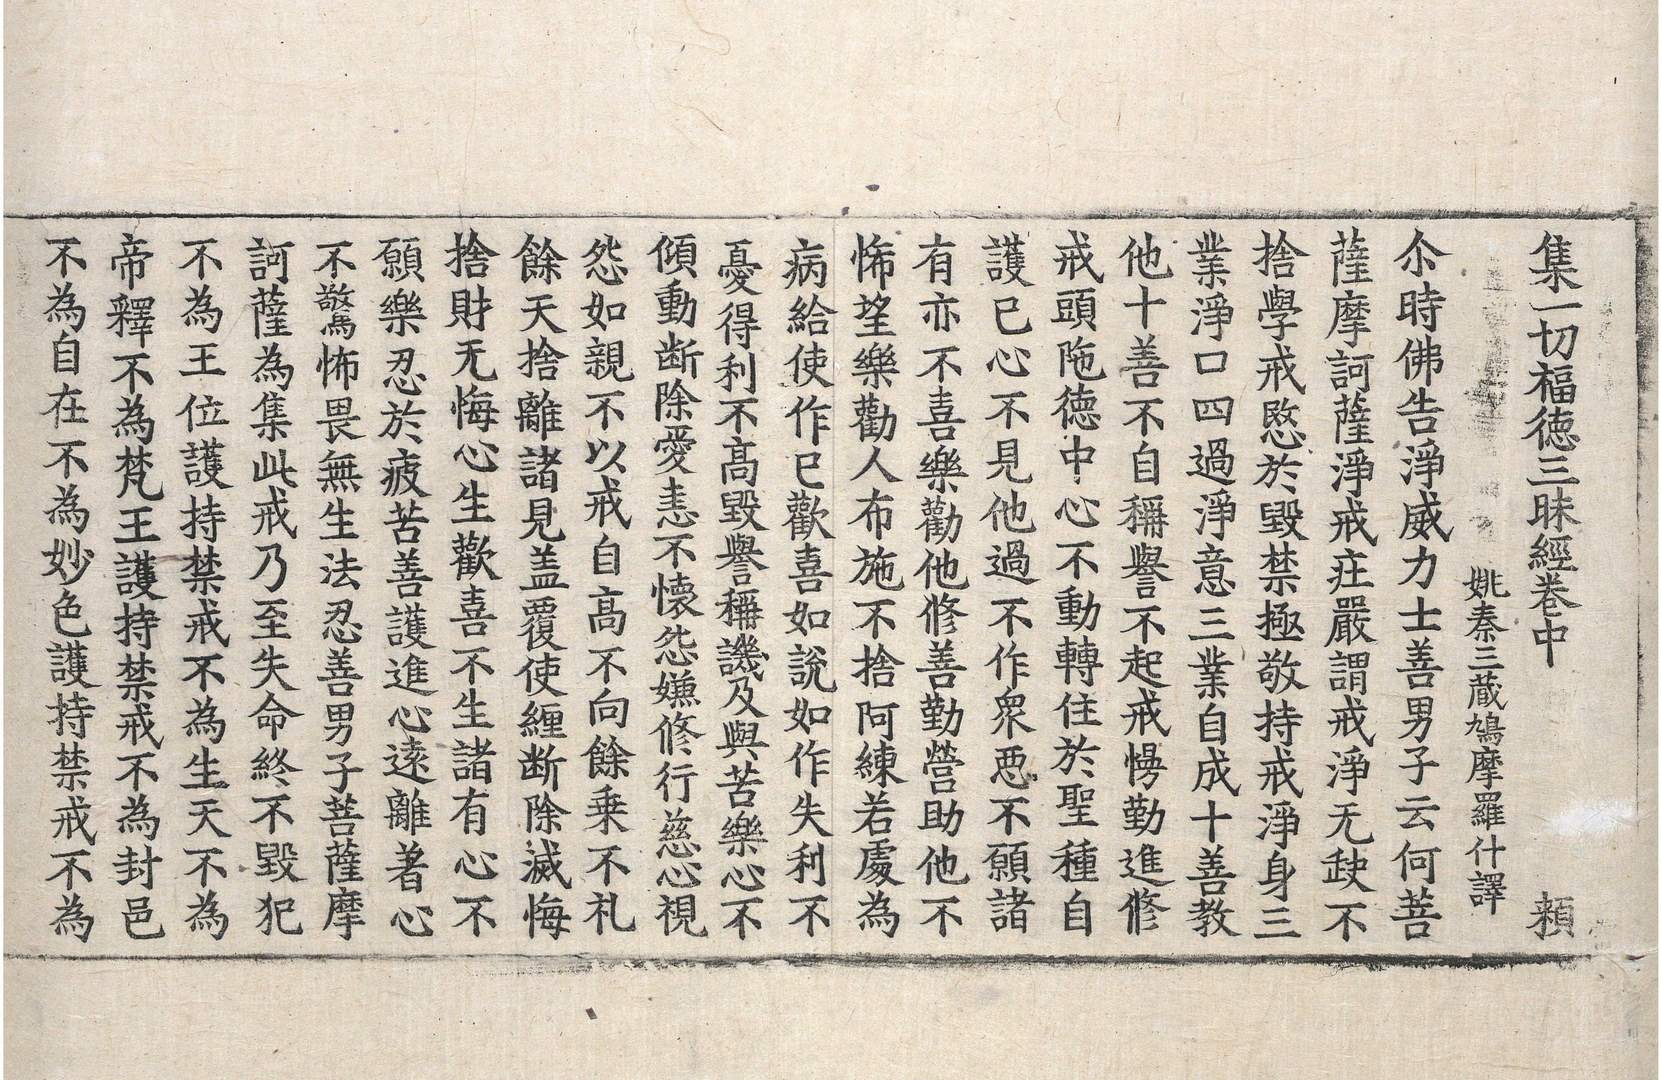 集一切福德三昧經卷中 賴
姚秦三蔵鳩摩羅什譯
尒時佛告淨威力士善男子云何菩
薩摩訶薩淨戒庄嚴謂戒淨无𡙇不
捨學戒愍於毀禁極敬持戒淨身三
業淨口四過淨意三業自成十善教
他十善不自稱譽不起戒慢勤進修
戒頭陁德中心不動轉住於聖種自
護已心不見他過不作衆惡不願諸
有亦不喜樂勸他修善勤營助他不
怖望樂勸人布施不捨阿練若處為
病給使作已歡喜如說如作失利不
憂得利不高毀譽稱譏及與苦樂心不
傾動断除愛恚不懷怨嫌修行慈心視
怨如親不以戒自高不向餘乗不礼
餘天捨離諸見盖覆使纏断除滅悔
捨財无悔心生歡喜不生諸有心不
願樂忍於疲苦善護進心遠離著心
不驚怖畏無生法忍善男子菩薩摩
訶薩為集此戒乃至失命終不毀犯
不為王位護持禁戒不為生天不為
帝釋不為梵王護持禁戒不為封邑
不為自在不為妙色護持禁戒不為